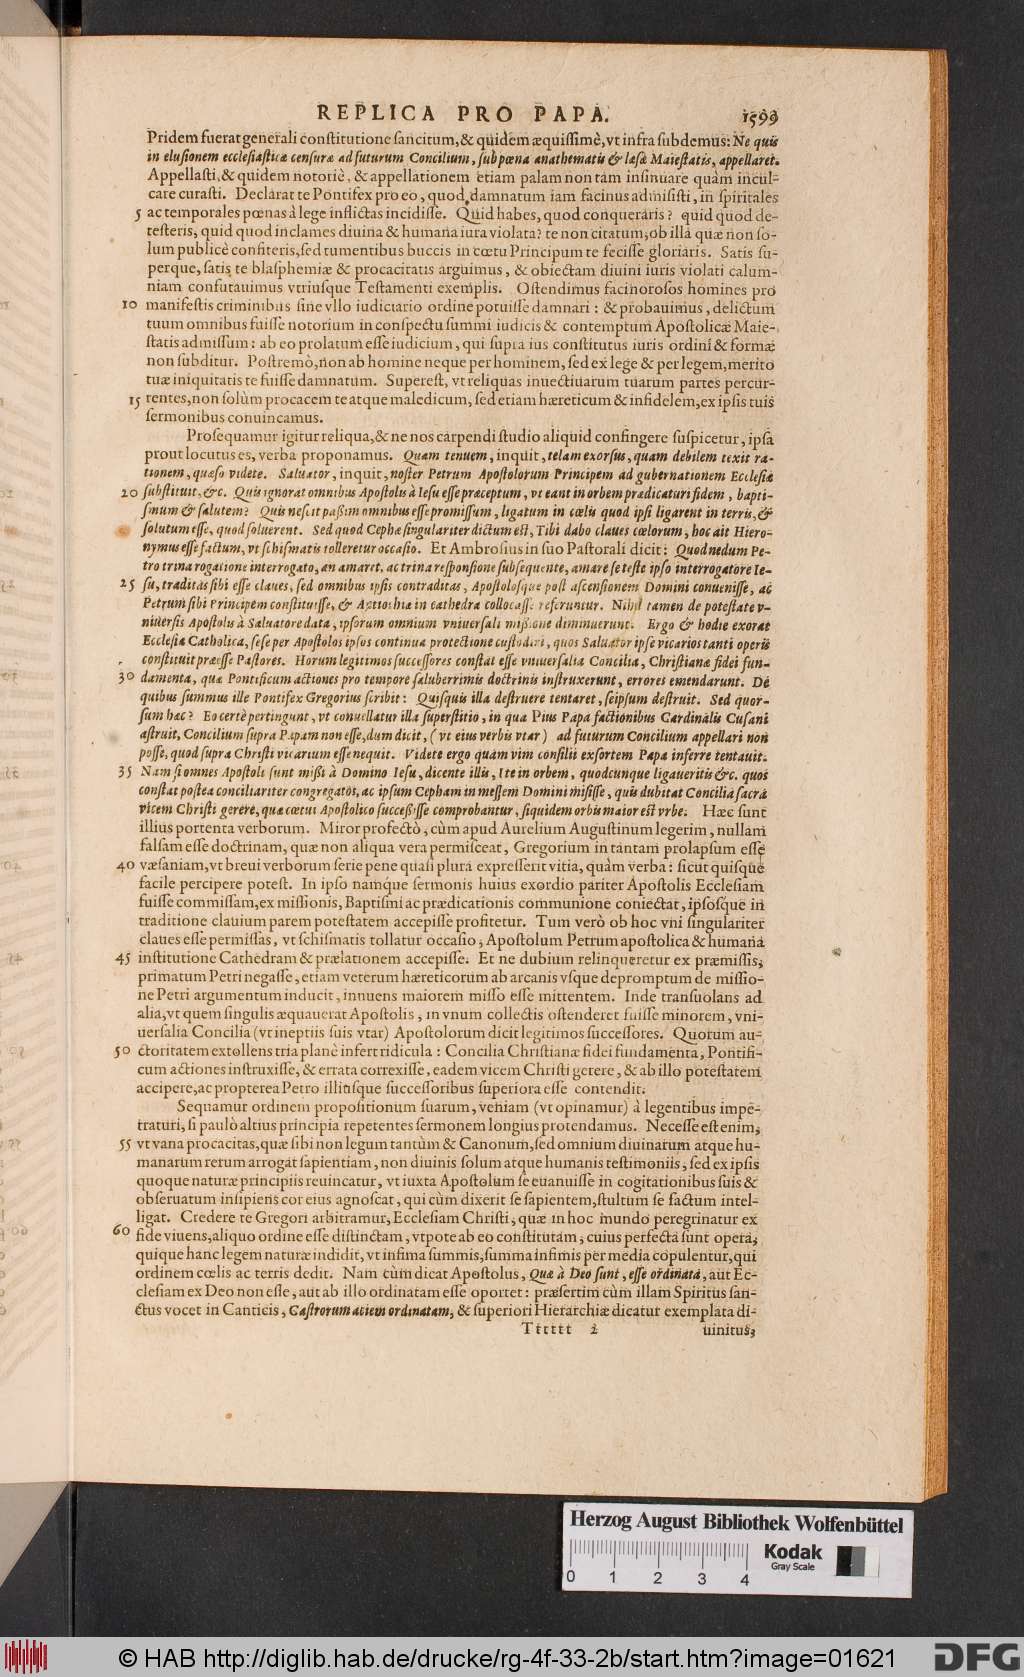 REPLICA PRO PAPA. 1599
Pridem fuerat generali constitutione sancitum, & quidem æquissimè, vt infra subdemus: Ne quis
in elusionem ecclesiasticæ censuræ ad futurum Concilium, sub pœna anathematis & læsæ Maiestatis, appellaret.
Appellasti, & quidem notoriè, & appellationem etiam palam non tam insinuare quàm incul-
care curasti. Declarat te Pontifex pro eo, quod damnatum iam facinus admisisti, in spiritales
5 ac temporales pœnas à lege inflictas incidisse. Quid habes, quod conqueraris? quid quod de-
testeris, quid quod inclames diuina & humana iura violata? te non citatum, ob illa quæ non so-
lum publicè confiteris, sed tumentibus buccis in cœtu Principum te fecisse gloriaris. Satis su-
perque, satis te blasphemiæ & procacitatis arguimus, & obiectam diuini iuris violati calum-
niam confutauimus vtriusque Testamenti exemplis. Ostendimus facinorosos homines pro
10 manifestis criminibus sine vllo iudiciario ordine potuisse damnari: & probauimus, delictum
tuum omnibus fuisse notorium in conspectu summi iudicis & contemptum Apostolicæ Maie-
statis admissum: ab eo prolatum esse iudicium, qui supra ius constitutus iuris ordini & formæ
non subditur. Postremò, non ab homine neque per hominem, sed ex lege & per legem, merito
tuæ iniquitatis te fuisse damnatum. Superest, vt reliquas inuectiuarum tuarum partes percur-
15 rentes, non solùm procacem te atque maledicum, sed etiam hæreticum & infidelem, ex ipsis tuis
sermonibus conuincamus.
Prosequamur igitur reliqua, & ne nos carpendi studio aliquid confingere suspicetur, ipsa
prout locutus es, verba proponamus. Quam tenuem, inquit, telam exorsus, quam debilem texit ra-
tionem, quæso videte. Saluator, inquit, noster Petrum Apostolorum Principem ad gubernationem Ecclesiæ
20 substituit, &c. Quis ignorat omnibus Apostolis à Iesu esse præceptum, vt eant in orbem prædicaturi fidem, bapti-
smum & salutem? Quis nescit paßim omnibus esse promissum, ligatum in cœlis quod ipsi ligarent in terris, &
solutum esse, quod soluerent. Sed quod Cephæ singulariter dictum est, Tibi dabo claues cœlorum, hoc ait Hiero-
nymus esse factum, vt schismatis tolleretur occasio. Et Ambrosius in suo Pastorali dicit: Quod nedum Pe-
tro trina rogatione interrogato, an amaret, ac trina responsione subsequente, amare se teste ipso interrogatore Ie-
25 su, traditas sibi esse claues, sed omnibus ipsis contraditas, Apostolosque post ascensionem Domini conuenisse, ac
Petrum sibi Principem constituisse, & Antiochiæ in cathedra collocasse referuntur. Nihil tamen de potestate v-
niuersis Apostolis à Saluatore data, ipsorum omnium vniuersali mißione diminuerunt. Ergo & hodie exorat
Ecclesia Catholica, sese per Apostolos ipsos continua protectione custodiri, quos Saluator ipse vicarios tanti operis
constituit præesse Pastores. Horum legitimos successores constat esse vniuersalia Concilia, Christianæ fidei fun-
30 damenta, quæ Pontificum actiones pro tempore saluberrimis doctrinis instruxerunt, errores emendarunt. De
quibus summus ille Pontifex Gregorius scribit: Quisquis illa destruere tentaret, seipsum destruit. Sed quor-
sum hæc? Eo certè pertingunt, vt conuellatur illa superstitio, in qua Pius Papa factionibus Cardinalis Cusani
astruit, Concilium supra Papam non esse, dum dicit, (vt eius verbis vtar) ad futurum Concilium appellari non
posse, quod supra Christi vicarium esse nequit. Videte ergo quàm vim consilii exsortem Papa inferre tentauit.
35 Nam si omnes Apostoli sunt mißi à Domino Iesu, dicente illis, Ite in orbem, quodcunque ligaueritis &c. quos
constat postea conciliariter congregatos, ac ipsum Cepham in messem Domini misisse, quis dubitat Concilia sacra
vicem Christi gerere, quæ cœtui Apostolico succeßisse comprobantur, siquidem orbis maior est vrbe. Hæc sunt
illius portenta verborum. Miror profectò, cùm apud Aurelium Augustinum legerim, nullam
falsam esse doctrinam, quæ non aliqua vera permisceat, Gregorium in tantam prolapsum esse
40 væsaniam, vt breui verborum serie pene quasi plura expresserit vitia, quàm verba: sicut quisque
facile percipere potest. In ipso namque sermonis huius exordio pariter Apostolis Ecclesiam
fuisse commissam, ex missionis, Baptismi ac prædicationis communione coniectat, ipsosque in
traditione clauium parem potestatem accepisse profitetur. Tum verò ob hoc vni singulariter
claues esse permissas, vt schismatis tollatur occasio, Apostolum Petrum apostolica & humana
45 institutione Cathedram & prælationem accepisse. Et ne dubium relinqueretur ex præmissis,
primatum Petri negasse, etiam veterum hæreticorum ab arcanis vsque depromptum de missio-
ne Petri argumentum inducit, innuens maiorem misso esse mittentem. Inde transuolans ad
alia, vt quem singulis æquauerat Apostolis, in vnum collectis ostenderet fuisse minorem, vni-
uersalia Concilia (vt ineptiis suis vtar) Apostolorum dicit legitimos successores. Quorum au-
50 ctoritatem extollens tria planè infert ridicula: Concilia Christianæ fidei fundamenta, Pontifi-
cum actiones instruxisse, & errata correxisse, eadem vicem Christi gerere, & ab illo potestatem
accipere, ac propterea Petro illiusque successoribus superiora esse contendit.
Sequamur ordinem propositionum suarum, veniam (vt opinamur) à legentibus impe-
traturi, si paulò altius principia repetentes sermonem longius protendamus. Necesse est enim,
55 vt vana procacitas, quæ sibi non legum tantùm & Canonum, sed omnium diuinarum atque hu-
manarum rerum arrogat sapientiam, non diuinis solum atque humanis testimoniis, sed ex ipsis
quoque naturæ principiis reuincatur, vt iuxta Apostolum se euanuisse in cogitationibus suis &
obseruatum insipiens cor eius agnoscat, qui cùm dixerit se sapientem, stultum se factum intel-
ligat. Credere te Gregori arbitramur, Ecclesiam Christi, quæ in hoc mundo peregrinatur ex
60 fide viuens, aliquo ordine esse distinctam, vtpote ab eo constitutam, cuius perfecta sunt opera,
quique hanc legem naturæ indidit, vt infima summis, summa infimis per media copulentur, qui
ordinem cœlis ac terris dedit. Nam cùm dicat Apostolus, Quæ à Deo sunt, esse ordinata, aut Ec-
clesiam ex Deo non esse, aut ab illo ordinatam esse oportet: præsertim cùm illam Spiritus san-
ctus vocet in Canticis, Castrorum aciem ordinatam, & superiori Hierarchiæ dicatur exemplata di-
Tttttt 2 uinitus,
Herzog August Bibliothek Wolfenbüttel
Kodak
Gray Scale
0 1 2 3 4
© HAB http://diglib.hab.de/drucke/rg-4f-33-2b/start.htm?image=01621
DFG